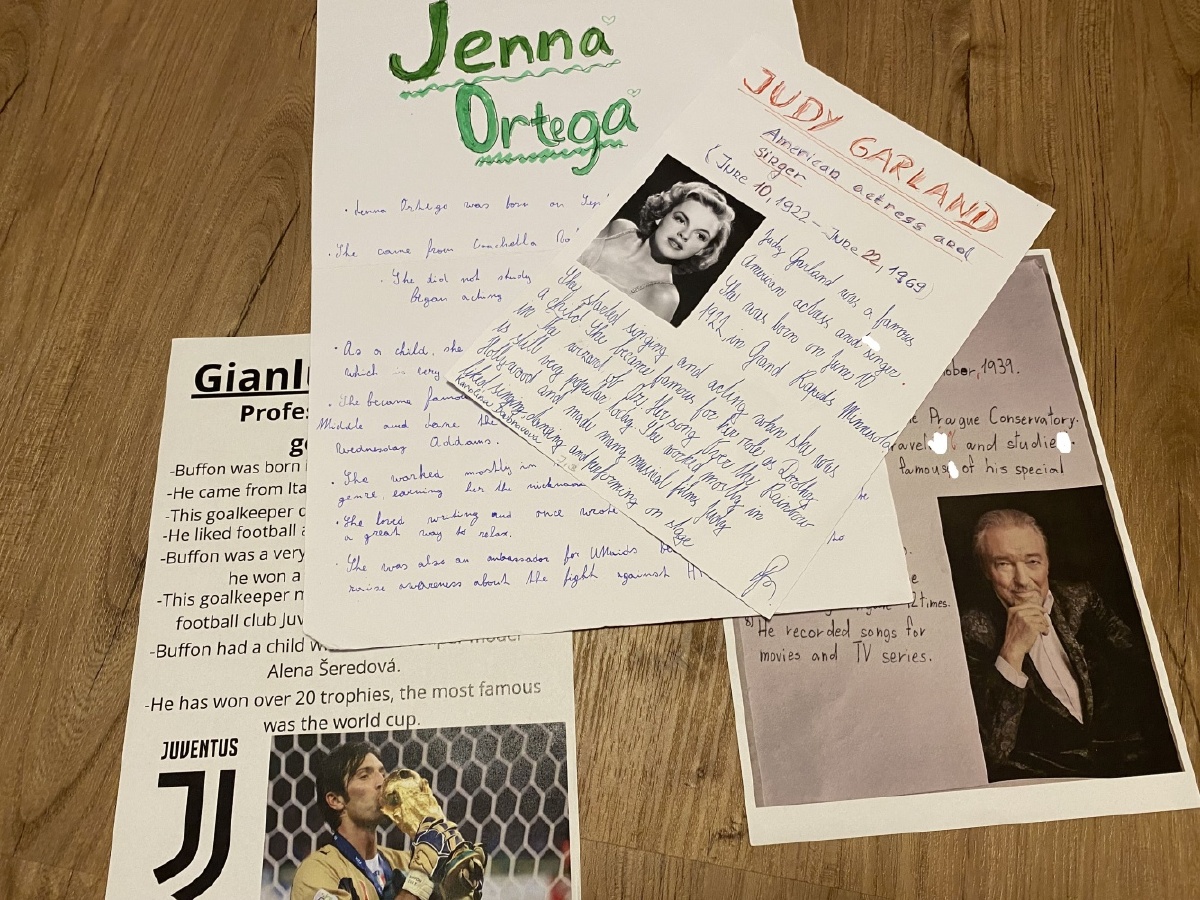 Jenna
Ortega
• Jenna Ortega was born on Sep
• She came from Coachella
• She did not study
began acting
• As a child, she
which is very
• She became famous
Middle and Jane the
Wednesday Addams.
• She worked mostly in
genre, earning her the nickname
• She loved writing and once wrote
a great way to relax.
• She was also an ambassador for UNaids
raise awareness about the fight against HI
be
JUDY GARLAND
American actress and
singer
(June 10, 1922 – June 22, 1969)
Judy Garland was a famous
American actress and singer.
She was born on June 10
1922, in Grand Rapids Minnesota
She started singing and acting when she was
a child She became famous for her role as Dorothy
in the wizard of Oz. Her song Over the Rainbow
is still very popular today. She worked mostly in
Hollywood and made many musical films Judy
liked singing, dancing and performing on stage
Gianl
Profes
go
-Buffon was born i
-He came from Ita
-This goalkeeper
-He liked football a
-Buffon was a very
he won a
-This goalkeeper
football club Juv
-Buffon had a child
Alena Šeredová.
-He has won over 20 trophies, the most famous
was the world cup.
JUVENTUS
ober, 1939.
e Prague Conservatory.
ravel and studie
famous of his special
12 times.
8) He recorded songs for
movies and TV series.